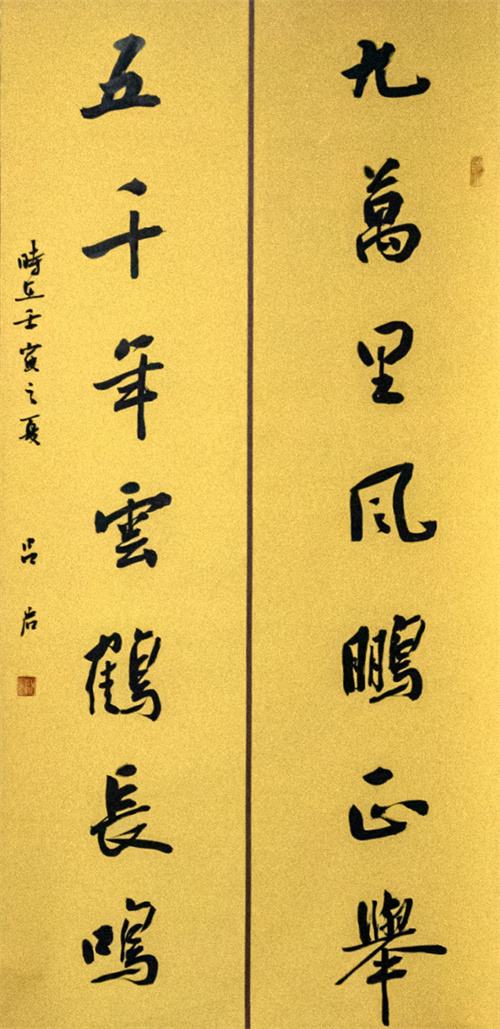 九萬里風鵬正舉
五千年雲鶴長鳴
時在壬寅之夏 呂岩